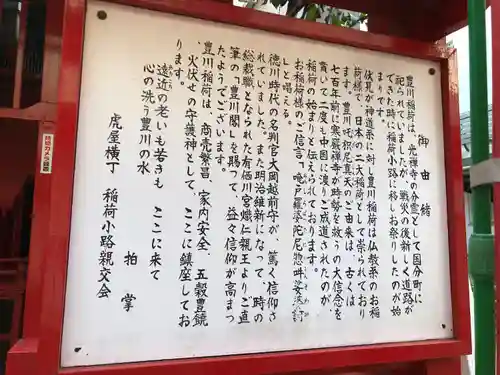 御由緒
豊川稲荷は、元禅寺の分霊として国分町に
祀られていましたが、戦災の後新しく道路が
できた時に稲荷小路に移しお祭りしたのが始
まりです。
伏見が神道系に対し豊川稲荷は仏教系のお稲
荷様で、日本の二大稲荷として崇られており
ます。豊川吒枳尼真天のご由来は、古くは
七百年前に寒巌禅師が時勢を救うの大信念を
貫いて二度も中国に渡りご成道されたのが、
稲荷の始まりと伝えられております。
お稲荷様のご信言、唵尸羅婆陀尼黎吽娑婆訶
しと唱える。
徳川時代の名判官大岡越前守が、篤く信仰さ
れていました。また明治維新になって、時の
総裁職となられた有栖川宮熾仁親王よりご直
筆の「豊川閣」を賜って、益々信仰が高まっ
たようでございます。
豊川稲荷は、商売繁昌、家内安全、五穀豊饒
、火伏せの守護神として、ここに鎮座してお
ります。
遠近の老いも若きも ここに来て
心の洗う豊川の水
拍掌
虎屋横丁 稲荷小路親交会
防犯カメラ作動中